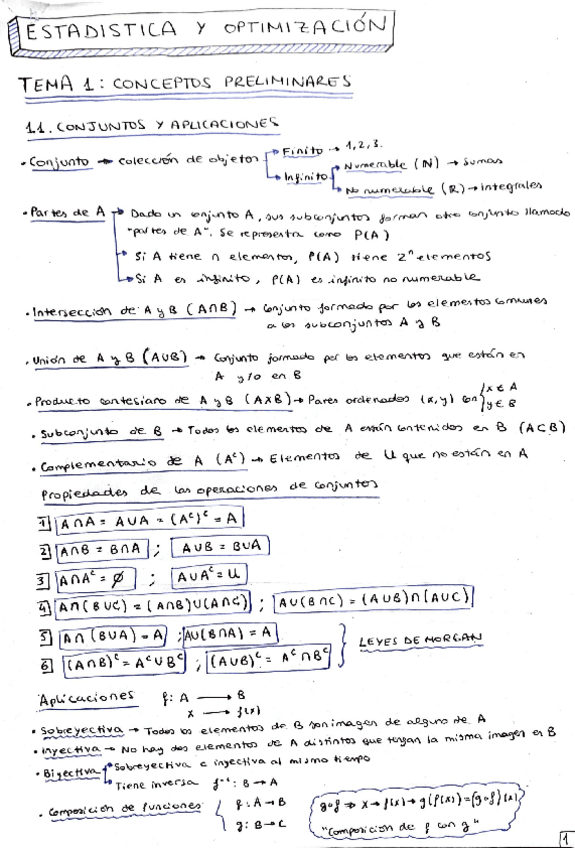 ESTADISTICA Y OPTIMIZACIÓN
TEMA 1: CONCEPTOS PRELIMINARES
1.1. CONJUNTOS Y APLICACIONES
• Conjunto → colección de objetos → Finito → 1, 2, 3.
→ Infinito → Numerable (N) → Sumas
→ No numerable (R) → integrales
• Partes de A → Dado un conjunto A, sus subconjuntos forman otro conjunto llamado
"partes de A". Se representa como P(A)
→ Si A tiene n elementos, P(A) tiene 2ⁿ elementos
→ Si A es infinito, P(A) es infinito no numerable
• Intersección de A y B (A∩B) → Conjunto formado por los elementos comunes
a los subconjuntos A y B
• Unión de A y B (A∪B) → Conjunto formado por los elementos que están en
A y/o en B
• Producto cartesiano de A y B (A×B) → Pares ordenados (x,y) con { x ∈ A
y ∈ B
• Subconjunto de B → Todos los elementos de A están contenidos en B (A⊂B)
• Complementario de A (Aᶜ) → Elementos de U que no están en A
Propiedades de las operaciones de conjuntos
1) A∩A = A∪A = (Aᶜ)ᶜ = A
2) A∩B = B∩A ; A∪B = B∪A
3) A∩Aᶜ = ∅ ; A∪Aᶜ = U
4) A∩(B∪C) = (A∩B)∪(A∩C) ; A∪(B∩C) = (A∪B)∩(A∪C)
5) A∩(B∪A) = A ; A∪(B∩A) = A
6) (A∩B)ᶜ = Aᶜ∪Bᶜ ; (A∪B)ᶜ = Aᶜ∩Bᶜ } LEYES DE MORGAN
Aplicaciones f: A → B
x → f(x)
• Sobreyectiva → Todos los elementos de B son imagen de alguno de A
• Inyectiva → No hay dos elementos de A distintos que tengan la misma imagen en B
• Biyectiva → Sobreyectiva e inyectiva al mismo tiempo
→ Tiene inversa f⁻¹: B → A
• Composición de funciones { f: A → B
g: B → C
g∘f ⇒ x → f(x) → g(f(x)) = (g∘f)(x)
"Composición de f con g"
1